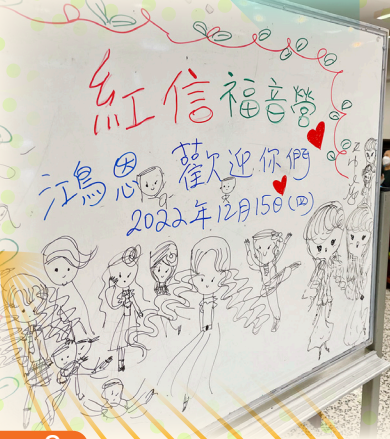 紅信福音營
鴻恩 歡迎你們
2022年12月15日(四)